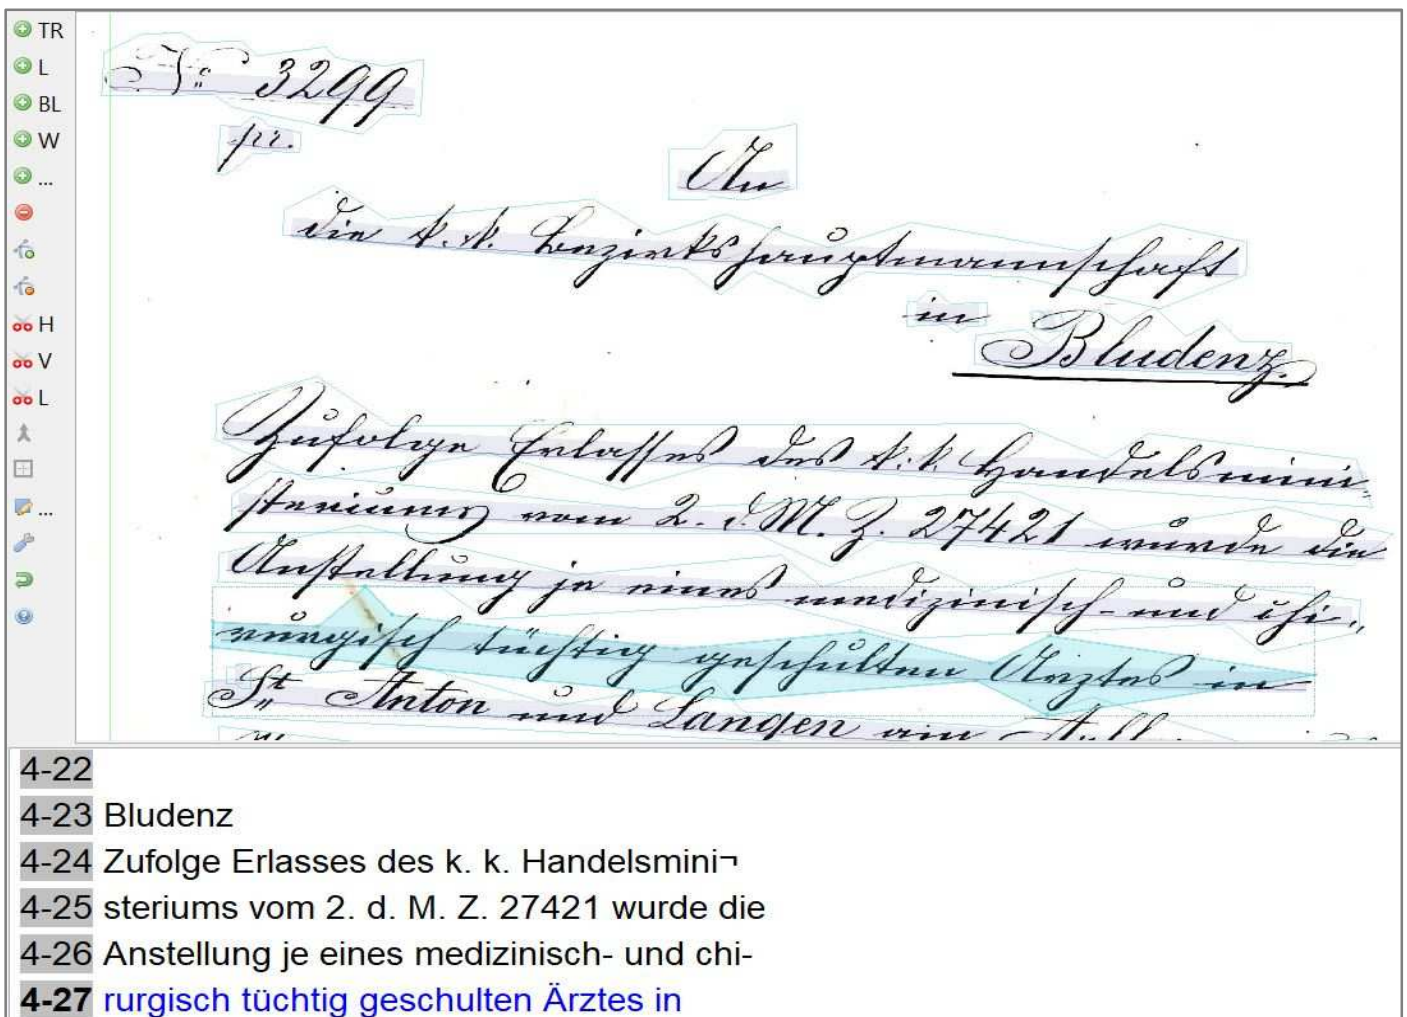 TR
L
BL
W
...
H
V
L
...
No. 3299
pr.
An
die k. k. Bezirkshauptmannschaft
in
Bludenz.
Zufolge Erlasses des k. k. Handelsmini=
steriums vom 2. d. M. Z. 27421 wurde die
Anstellung je eines medizinisch- und chi„
rurgisch tüchtig geschulten Arztes in
St. Anton und Langen am
4-22
4-23 Bludenz
4-24 Zufolge Erlasses des k. k. Handelsmini¬
4-25 steriums vom 2. d. M. Z. 27421 wurde die
4-26 Anstellung je eines medizinisch- und chi-
4-27 rurgisch tüchtig geschulten Ärztes in